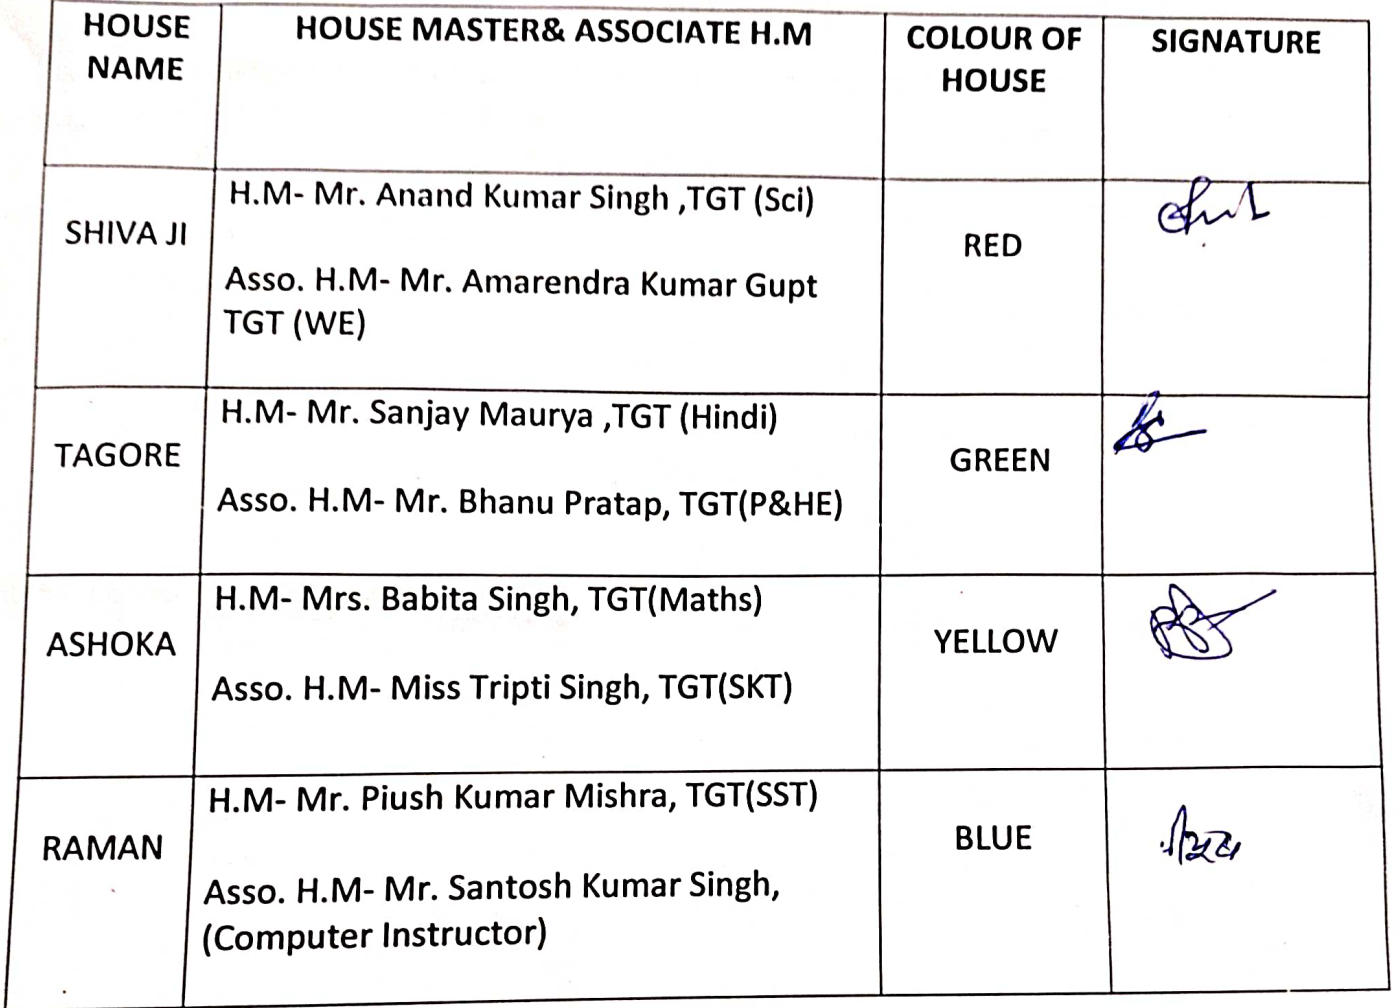 HOUSE NAME HOUSE MASTER& ASSOCIATE H.M COLOUR OF HOUSE SIGNATURE
SHIVA JI
H.M- Mr. Anand Kumar Singh ,TGT (Sci)
Asso. H.M- Mr. Amarendra Kumar Gupt
TGT (WE)
RED
TAGORE
H.M- Mr. Sanjay Maurya ,TGT (Hindi)
Asso. H.M- Mr. Bhanu Pratap, TGT(P&HE)
GREEN
ASHOKA
H.M- Mrs. Babita Singh, TGT(Maths)
Asso. H.M- Miss Tripti Singh, TGT(SKT)
YELLOW
RAMAN
H.M- Mr. Piush Kumar Mishra, TGT(SST)
Asso. H.M- Mr. Santosh Kumar Singh,
(Computer Instructor)
BLUE